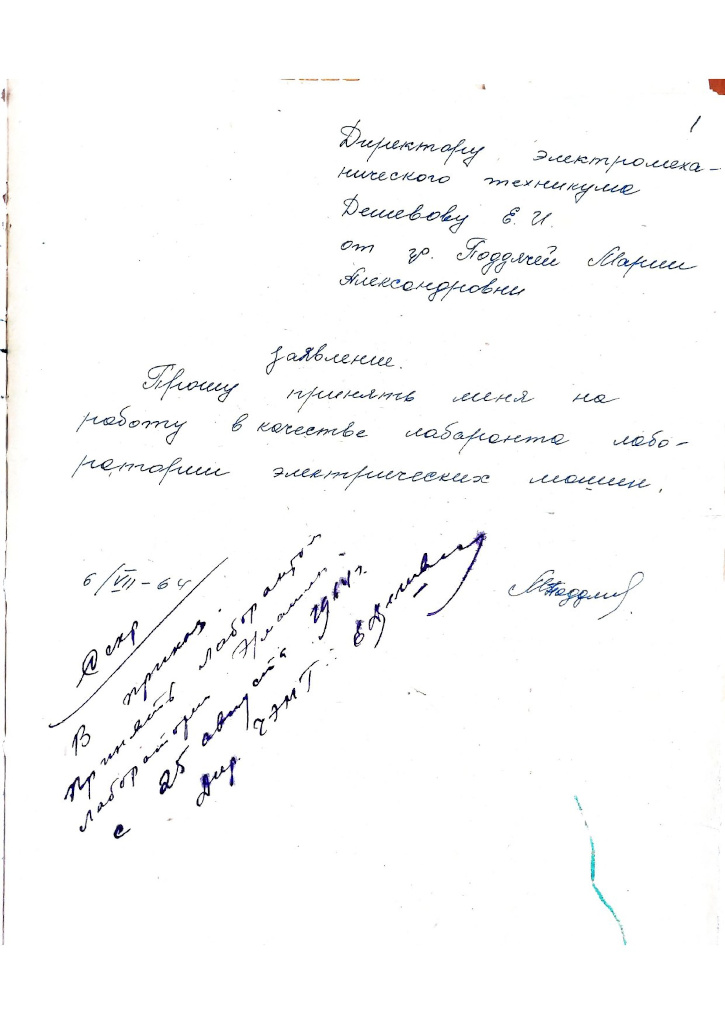 1
Директору электромеха-
нического техникума
Дешевову Е. И.
от гр. Поддячей Марии
Александровни
Заявление.
Прошу принять меня на
работу в качестве лабаранта лабо-
ратории электрических машин.
6/VII-64
В приказ.
Принять лаборантом
лаборатории Эл машин
с 25 августа 1964 г.
Дир. ЧЭМТ